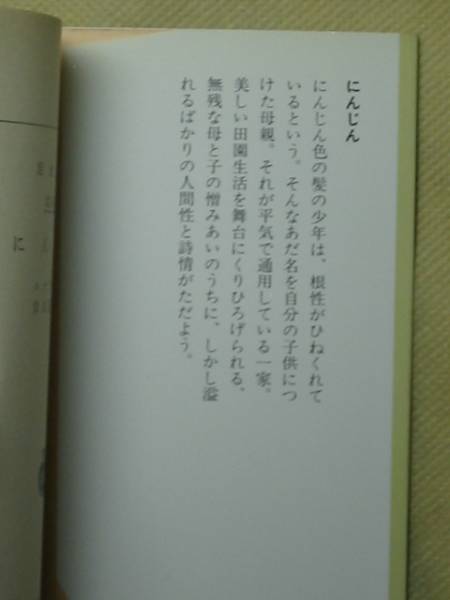 にんじん
にんじん色の髪の少年は、根性がひねくれて
いるという。そんなあだ名を自分の子供につ
けた母親。それが平気で通用している一家。
美しい田園生活を舞台にくりひろげられる、
無残な母と子の憎みあいのうちに、しかし溢
れるばかりの人間性と詩情がただよう。
に